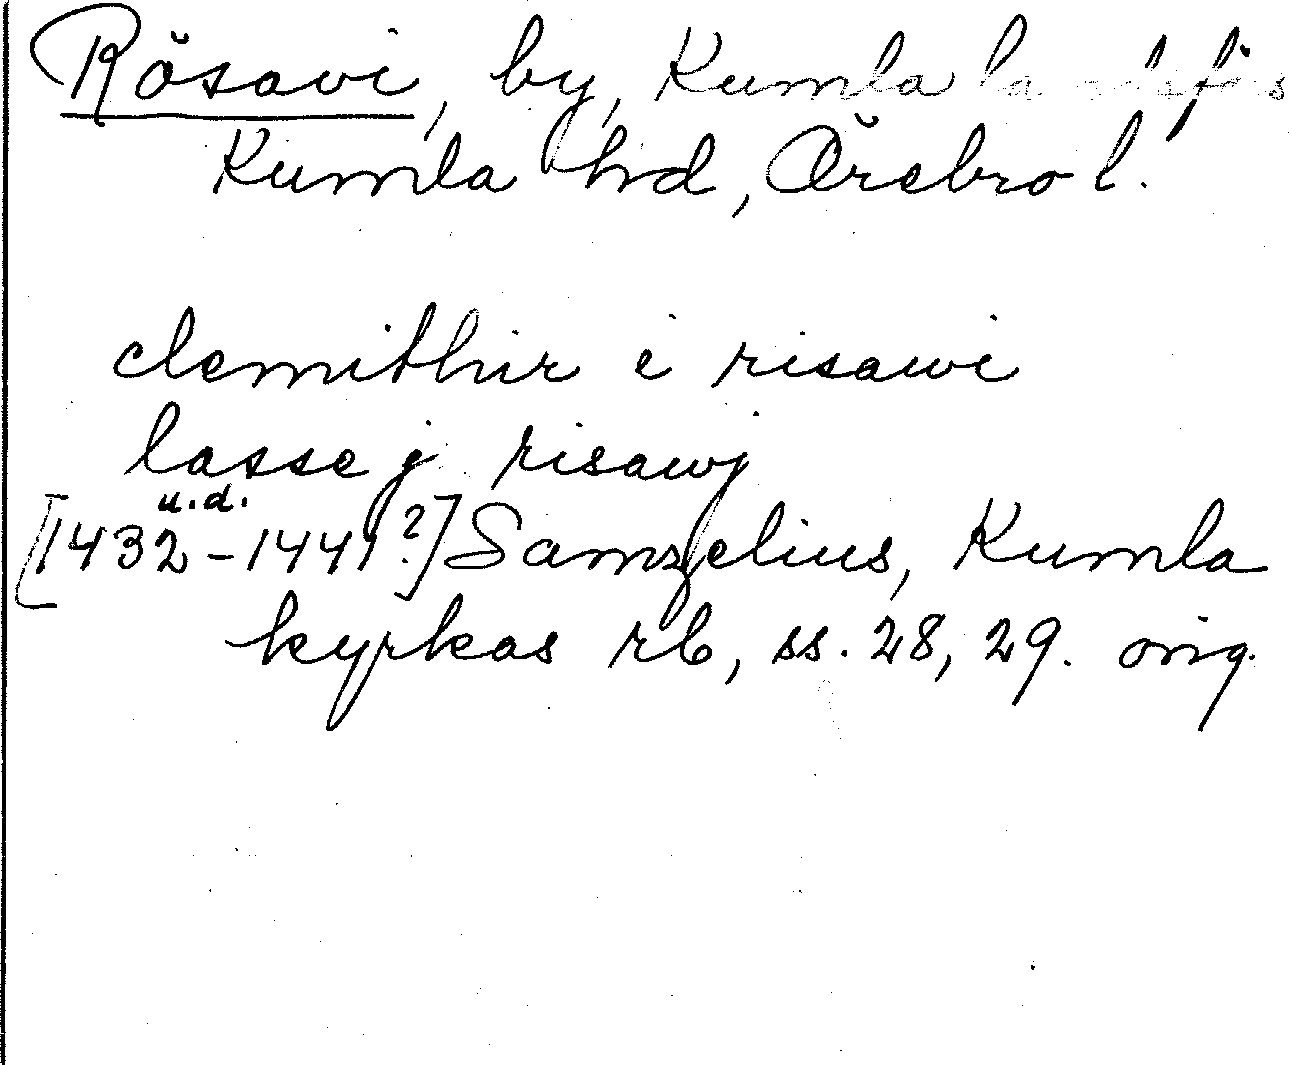 Rösavi, by, Kumla landsförs
Kumla hd, Örebro l.
clemithir i risawi
lasse j risawj
u.d.
[1432-1441?] Samzelius, Kumla
kyrkas rb, ss. 28, 29. orig.